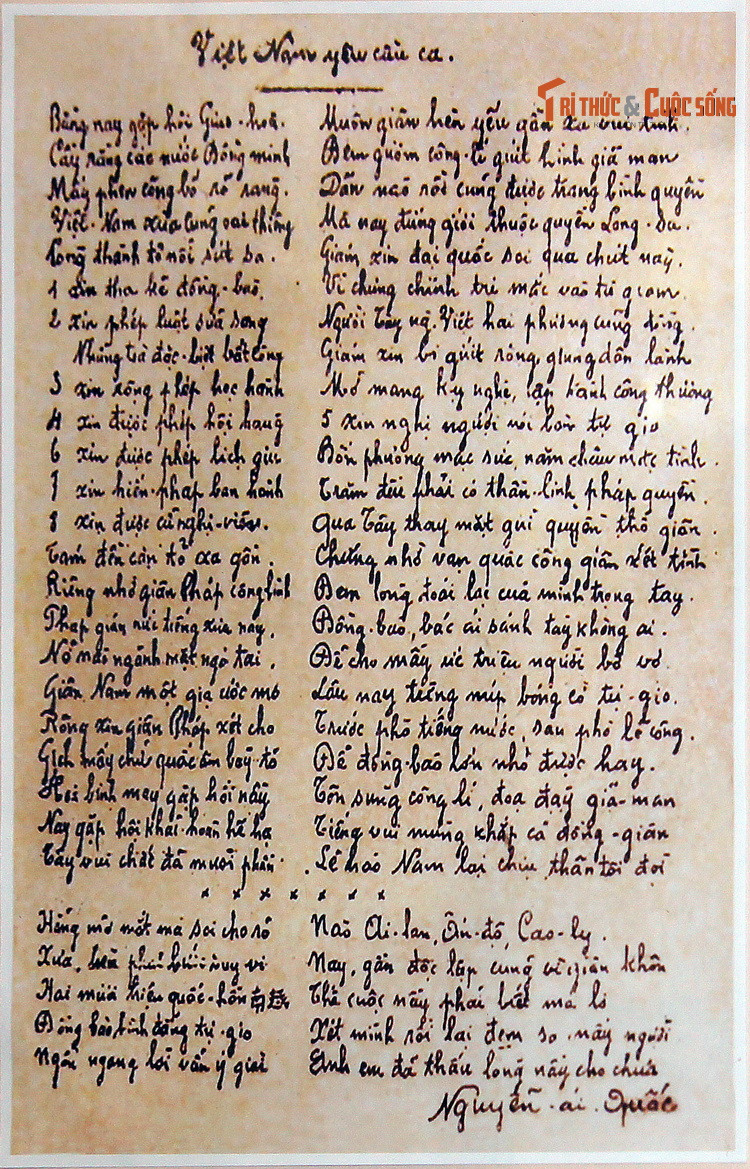 Việt Nam yêu cầu ca.
TRI THỨC & CUỘC SỐNG
Bằng nay gặp hội Giao-hoà. Muôn giân hèn yếu gần xa vui tình.
Cầy rằng các nước Đồng minh Đem gươm công-lí giứt hình giã man
Mấy phen công bố rõ ràng. Dân nào rồi cũng được trang bình quyền
Việt-Nam xưa cũng oai thiêng Mà nay đứng giưới thuộc quyền Lang-sa.
Lòng thành tỏ nỗi sút sa. Giám xin đại quốc soi qua chút nào.
1 xin tha kẻ đồng-bào, Vì chưng chính trị mắc vào tù giam.
2 xin phép luật sửa sang Người Tây ng. Việt hai phương cùng đồng.
Những toà đặc-biệt bất công Giám xin bỏ giứt rộng giung dân lành
3 xin rộng phép học hành Mở mang kỹ nghệ, lập hành công thương
4 xin được phép hội hàng 5 xin nghị ngươi nói bàn tự gio
6 xin được phép lịch giu Bốn phương mặc sức, năm châu mặc tình.
7 xin hiến-pháp ban hành Trăm đều phải có thần-linh pháp quyền.
8 xin được cử nghị-viên. Qua Tây thay mặt giải quyền thổ giân.
Tám đều cạn tỏ xa gần. Chứng nhờ vạn quấc công giân xét tình
Riêng nhờ giân Pháp công bình Đem lòng đoái lại của mình trọng tay.
Pháp giân nức tiếng xưa nay, Đồng-bào, bác ái sánh tày không ai.
Nỡ nào ngảnh mặt ngơ tai, Để cho mấy ức triệu người bơ vơ.
Giân Nam một giạ ước mơ Lâu nay tiếng núp bóng cờ tự-gio.
Rộng xin giân Pháp xét cho Trước phò tiếng nước, sau phò lẽ công.
Gịch mấy chữ quấc âm bày tỏ Để đồng-bào lớn nhỏ được hay.
Hoà bình may gặp hội nầy Tôn sùng công-lí, đoạ đày giã-man
Nay gặp hội khải-hoàn hỉ hạ Tiếng vui mừng khắp cả đồng-giân
Tây vui chắt đã mười phần. Lẽ nào Nam lại chịu thân tôi đòi
x x x x x x x
Hẵng mở mắt mà soi cho rõ Nào Ai-lan, Ấn-độ, Cao-ly.
Xưa, Nay, gần độc lập cũng vì giân khôn
Hai mươi triệu quốc-hồn 南越 Thế cuộc nầy phải biết mà lo
Đồng bào bình đẳng tự-gio Xét mình rồi lại đem so mấy người
Ngổn ngang lời vắn ý giài Anh em đã thấu lòng nầy cho chưa
Nguyễn-ái-Quốc